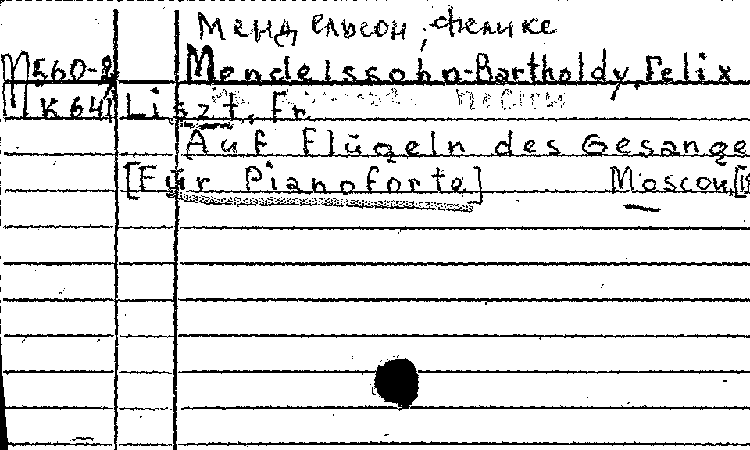 Мендельсон, Феликс
М560-2 Mendelssohn-Bartholdy, Felix
К 641 Liszt, Fr. песни
Auf Flügeln des Gesange
[Für Pianoforte] Moscou,